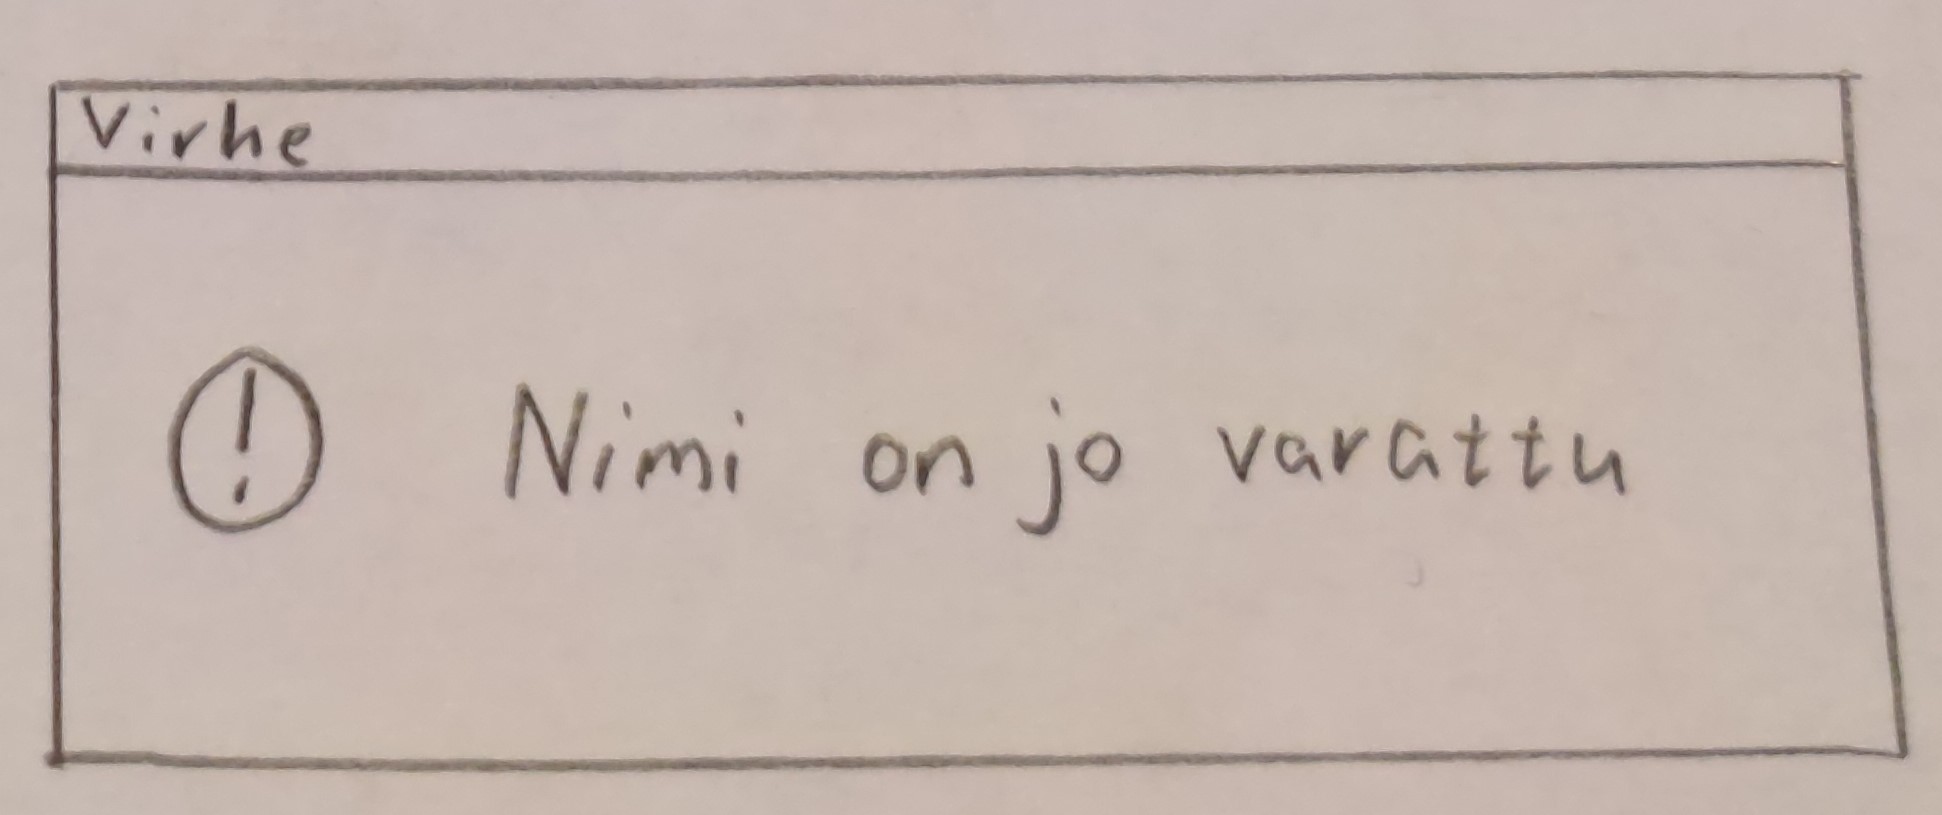 Virhe
! Nimi on jo varattu